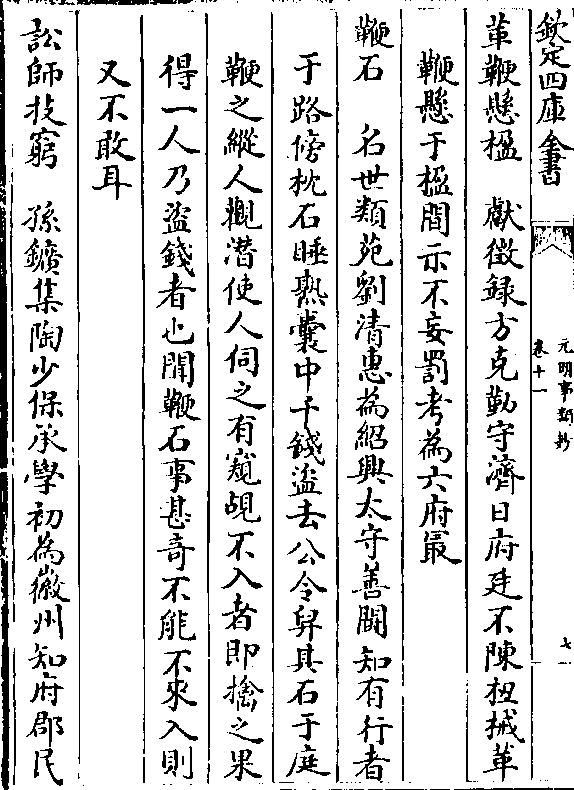 欽定四庫全書
元明事類鈔
卷十一
七
革鞭懸楹　獻徵録方克勤守濟日府廷不陳杻械革
鞭懸于楹間示不妄罰考為六府最
鞭石　名世類苑劉清惠為紹興太守善聞知有行者
于路傍枕石睡熟囊中千錢盜去公令舁其石于庭
鞭之縱人觀潛使人伺之有窺覘不入者即擒之果
得一人乃盜錢者也聞鞭石事甚奇不能不來入則
又不敢耳
訟師技窮　孫鑛集陶少保承學初為徽州知府郡民